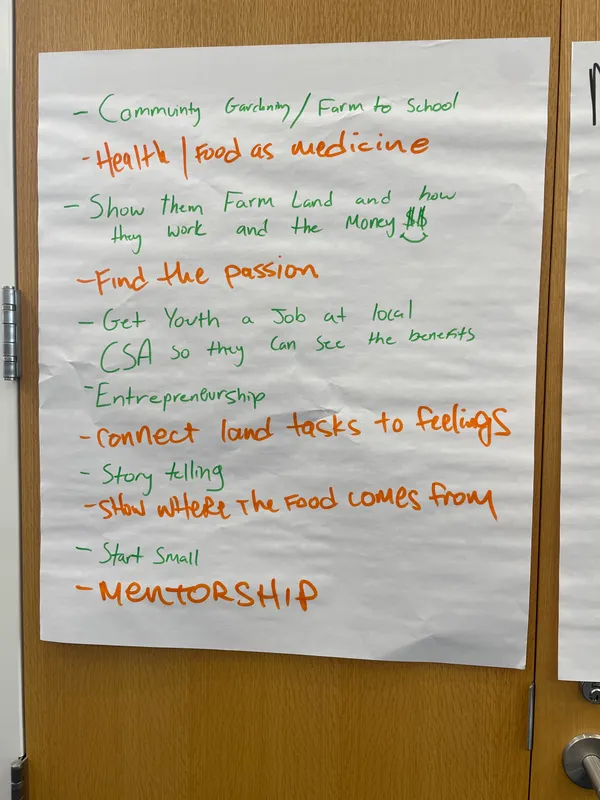 - Community Gardening / Farm to School
- Health | Food as medicine
- Show them Farm Land and how
they work and the Money $$
- Find the passion
- Get Youth a Job at local
CSA so they can see the benefits
- Entrepreneurship
- connect land tasks to feelings
- Story telling
- SHOW WHERE THE FOOD COMES FROM
- Start Small
- MENTORSHIP